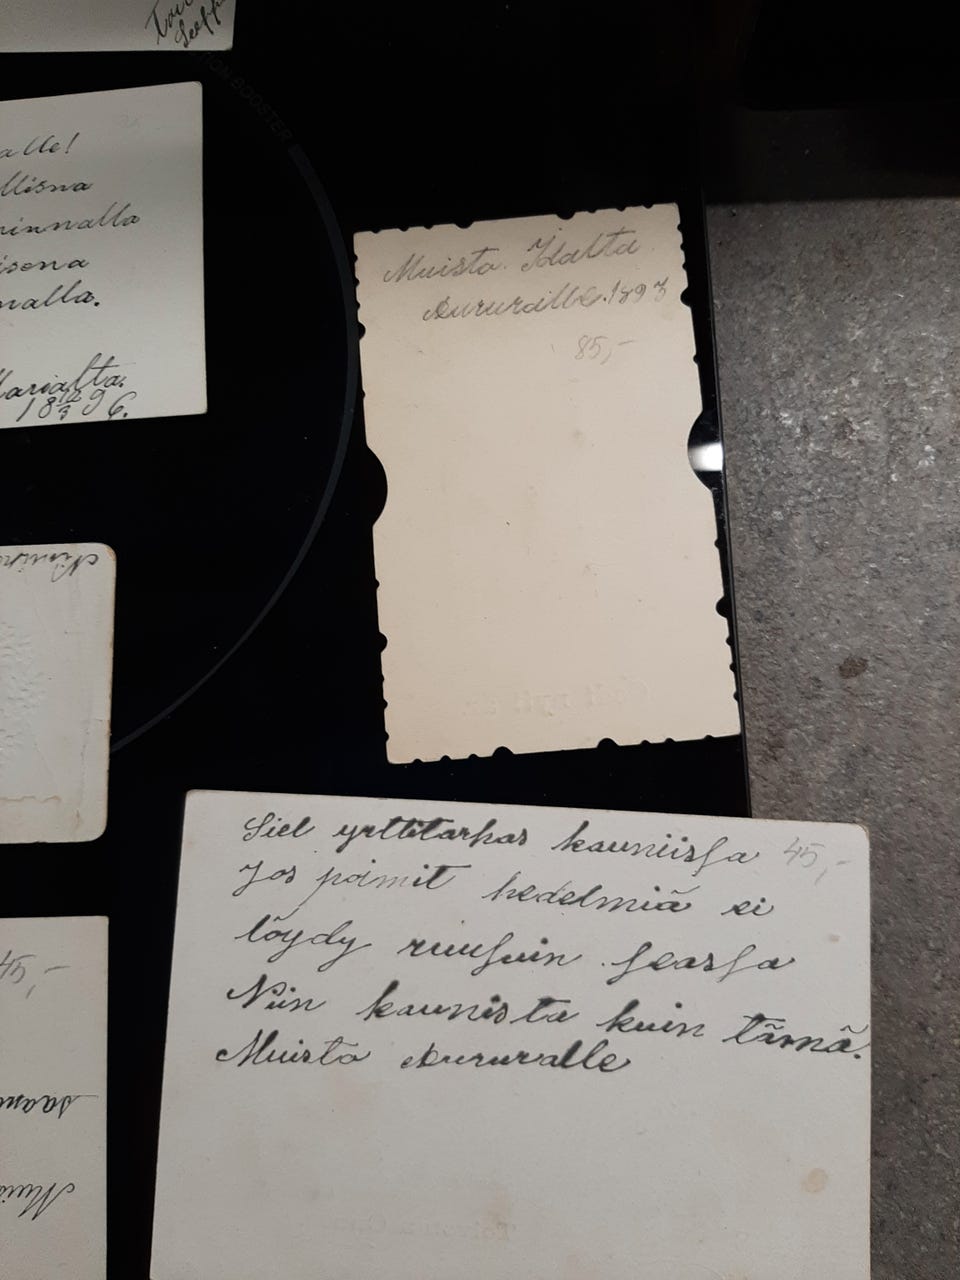 alle!
llisna
innalla
isena
nalla.
Marialta.
18 12/3 96.
Muisto. Idalta
Aururalle. 1893
85,-
Siel yrttitarhas kauniissa 45,-
Jos poimit hedelmiä ei
löydy ruusuin seassa
Niin kaunista kuin tämä.
Muisto Aururalle
45,-
BOOSTER